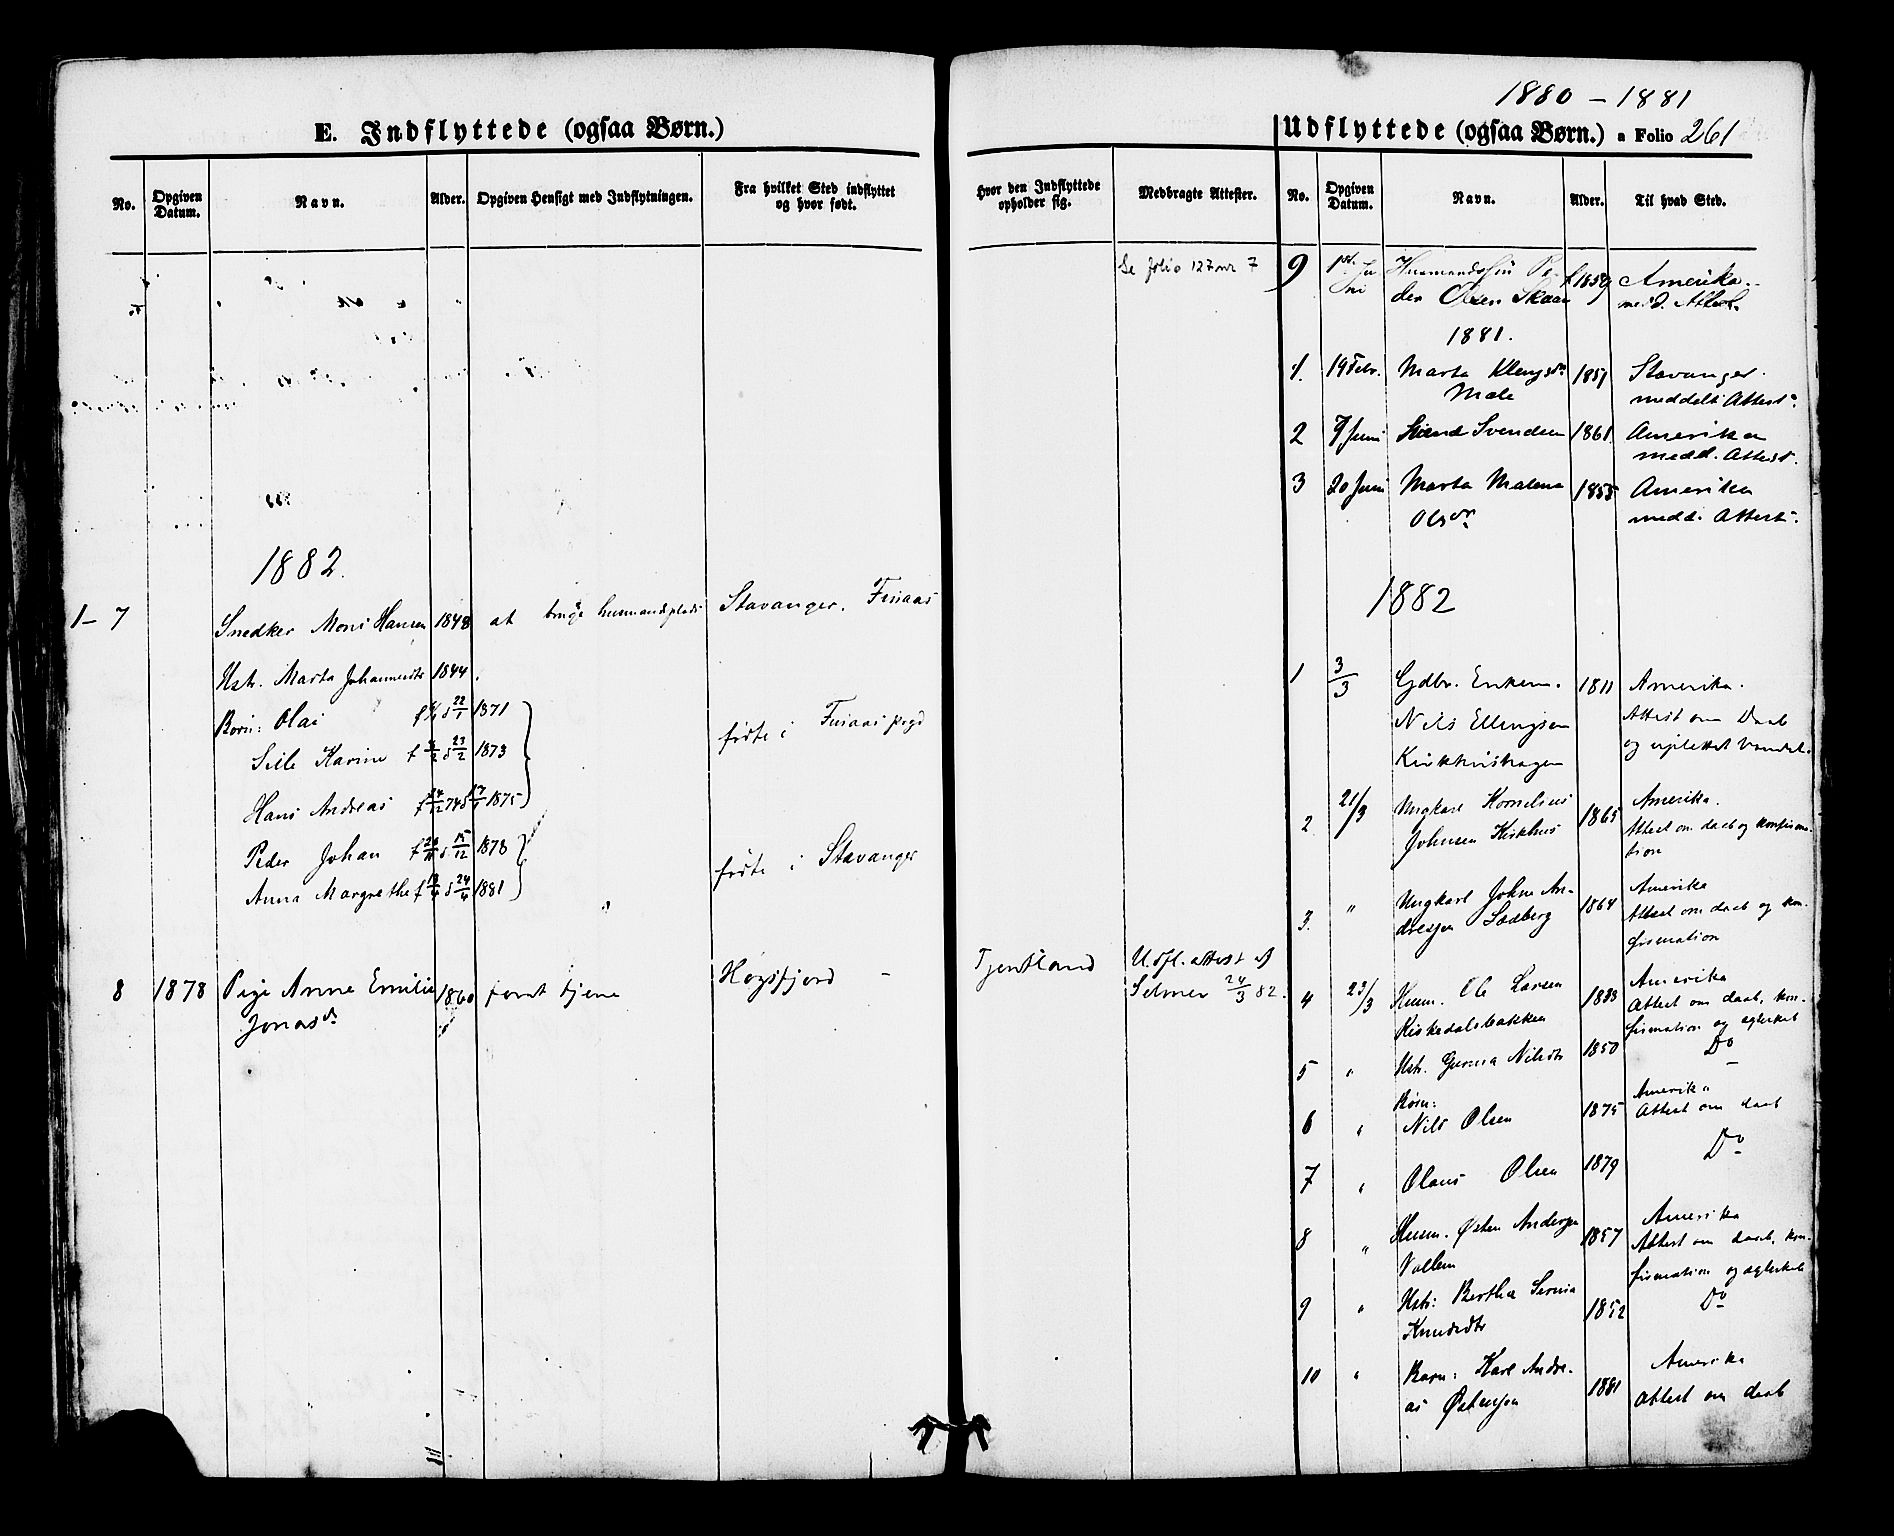 E. Indflyttede (ogsaa Børn.)
No.
Opgiven Datum.
Navn.
Alder.
Opgiven Hensigt med Indflytningen.
Fra hvilket Sted indflyttet og hvor født.
1882.
1-7 Snedker Mons Hansen 1848 at bruge husmandsplads Stavanger.
Hstr. Marta Johannesdtr 1844.
Børn: Olai 1871
Karine 1873 fødte i
Hans Andreas 1875
Peder Johan 1878
Anna Margrethe 1881 fødte i Stavanger
8 1878 Pige Anne Emilie 1860 tjene Høgsfjord - Tjentland Udfl. attest af
Jonasdr. Selmer 24/3 82.
1880 - 1881
Udflyttede (ogsaa Børn.) a Folio 261
Hvor den Indflyttede opholder sig.
Medbragte Attester.
No.
Opgiven Datum.
Navn.
Alder.
Til hvad Sted.
Se folio 127 nr 7
9 1ste Ju Husmandssøn Pe- f 1859 Amerika.
ni der Olsen Skaar med. Attest.
1881.
1. 19 Febr. Marta Klengsdr. 1851 Stavanger.
Male meddelt Attest.
2 7 Juni Svendsen 1861 Amerika
medd. Attest.
3 20 Juni Marta Malena 1855 Amerika
Olsdr. medd. Attest.
1882
1 3/3 Gdbr. Enkem. 1811 Amerika.
Nils Ellingsen Attest om Daab
og uplettet Vandel.
2 21/3 Ungkarl Kornelius 1865 Amerika.
Johnsen Kirkhus Attest om daab og konfirma-
tion
3. " Ungkarl John An- 1864 Amerika
dresen Attest om daab og kon-
firmation
4 23/3 Husm. Ole Larsen Amerika
Kirkedalsbakken Attest om daab, kon-
firmation og ægteskab
5 " Hstr. Gurina Nilsdtr 1850 Do
Børn:
6 " Nils Olsen 1875 Amerika
Attest om daab
7 " Olaus Olsen 1879 Do
8 " Husm. Østen Andersen 1857 Amerika
Vallem Attest om daab, kon-
firmation og ægteskab
9 " Hstr: Bertha Serina 1852 Do
Knudsdtr
10 " Barn: Karl Andre- 1881 Amerika
as Østensen Attest om daab